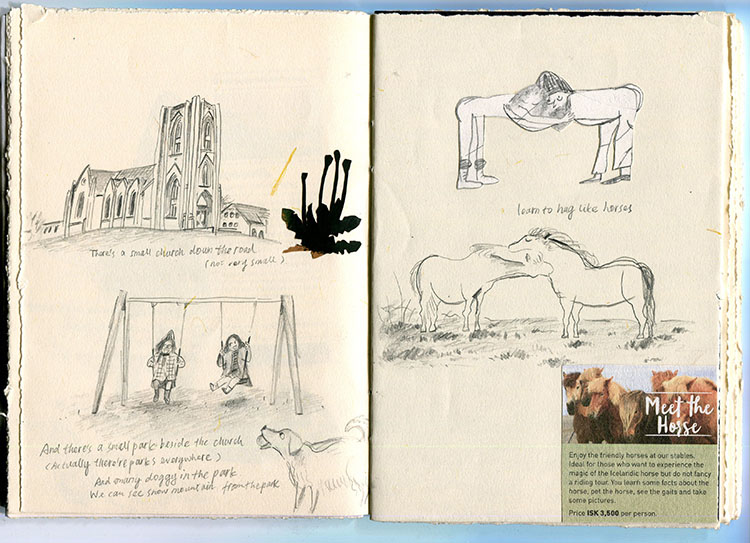 There's a small church down the road
(not very small)
And there's a small park beside the church
(Actually there're parks everywhere)
And many doggy in the park
We can see snow mountain from the park
learn to hug like horses
Meet the
Horse
Enjoy the friendly horses at our stables.
Ideal for those who want to experience the
magic of the Icelandic horse but do not fancy
a riding tour. You learn some facts about the
horse, pet the horse, see the gaits and take
some pictures.
Price ISK 3,500 per person.